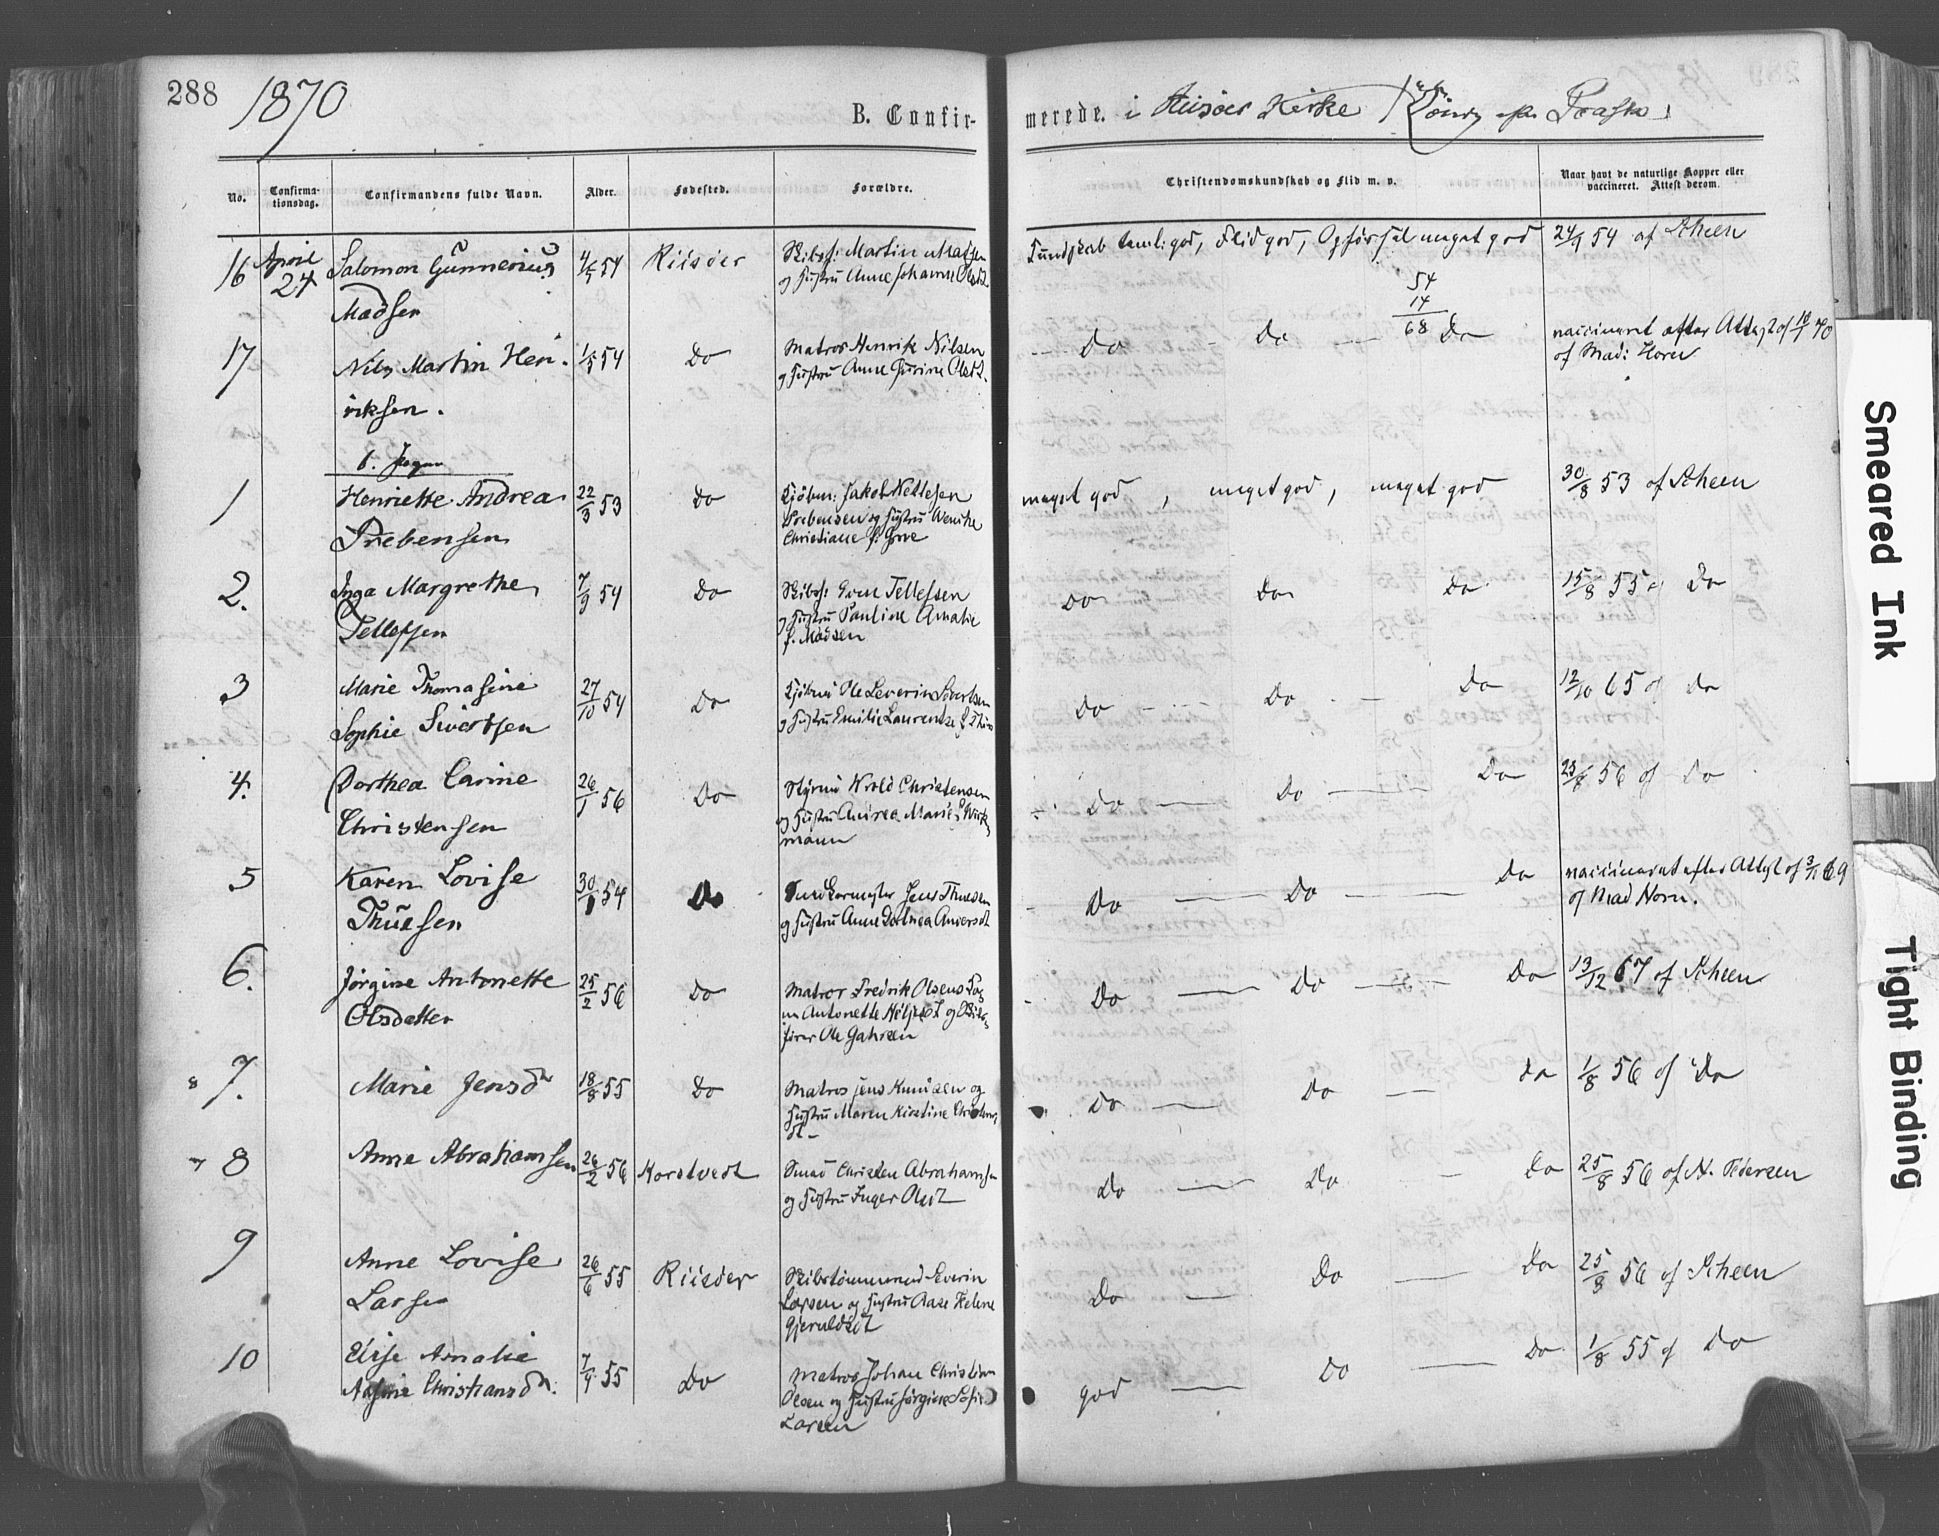 288
1870
B. Confir-
merede. i Riisøer Kirke
No.
Confirma-
tionsdag.
Confirmandens fulde Navn.
Alder.
Fødested.
Forældre.
Christendomskundskab og Flid m. v.
Naar havt de naturlige Kopper eller
vaccineret. Attest derom.
16 April 24 Salomon Gunnerius 4/5 54 Riisøer Skibsf: Martin Madsen
og Hustru Anne Johanne Olsdt
Madsen
Kundskab temligod, Flid god, Opførsel meget god 24/9 54 af Scheen
54
14
68
17 Nils Martin Hen- 1/5 54 Do Matros Henrik Nilsen
og Hustru Anne Gurine Olsdt.
riksen.
Do Do Do vaccineret efter Attest af 10/1 70
af Mad: Horn
b. Piger
1 Henriette Andrea 22/3 53 Do Kjøbm: Jakob Kettelsen
Prebensen og Hustru Wencke
Christiane f.
Prebensen
meget god, meget god, meget god 30/8 53 af Scheen
2. Inga Margrethe 7/9 54 Do Skibsf: Tellefsen
og Hustru Pauline Amalie
f. Madsen
Tellefsen
Do Do Do 15/8 55 af Do
3 Marie Thomasine 27/10 54 Do Kjøbm Ole Severin Sivertsen
og Hustru Emilie Laurentze f.
Sophie Sivertsen
Do Do Do 12/10 65 af Do
4. Dorthea Carine 26/1 56 Do Styrmd Wrold Christensen
og Hustru Andrea Marie f. Wirk-
mann
Christensen
Do Do Do 56 af Do
5 Karen Lovise 54 Do Jens Thuesen
og Hustru Anne Dorthea Andersdt
Thuesen
Do Do Do vaccineret efter Attest af 3/11 69
af Mad Horn.
6. Jørgine Antonette 25/2 56 Do Matros Fredrik Olsens
Antonette og Skibs-
fører Ole Gahrsen
Olsdatter
Do Do Do 13/12 67 af Scheen
8 7. Marie Jensdtr 18/8 55 Do Matros Jens Knudsen og
Hustru Maren Kirstine Christens
dt.
Do Do Do 1/8 56 af Do
7 8 Anne Abrahamsen 26/2 56 Korstvedt Smed Christen Abrahamsen
og Hustru Inger Olsdt
Do Do Do 25/8 56 af N. Pedersen
9 Anne Lovise 26/6 55 Riisøer Skibstømmermd Severin
Larsen og Hustru Aase Helene
Gjeruldsdt
Larsen
Do Do Do 25/8 56 af Scheen
10 Elise Amalie 7/9 55 Do Matros Johan Christian
Olsen og Hustru Jørgine Sofie
Larsen
Christiansdtr.
god Do Do 1/8 55 af Do
Smeared Ink
Tight Binding